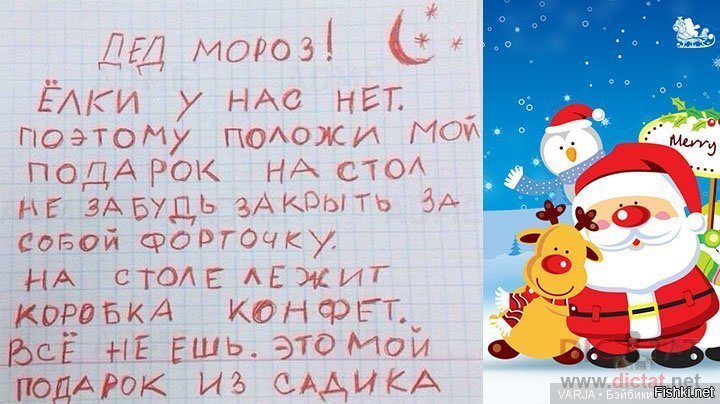 ДЕД МОРОЗ!
ЁЛКИ У НАС НЕТ.
ПОЭТОМУ ПОЛОЖИ МОЙ
ПОДАРОК НА СТОЛ
НЕ ЗАБУДЬ ЗАКРЫТЬ ЗА
СОБОЙ ФОРТОЧКУ.
НА СТОЛЕ ЛЕЖИТ
КОРОБКА КОНФЕТ.
ВСЁ НЕ ЕШЬ. ЭТО МОЙ
ПОДАРОК ИЗ САДИКА
Merry
www.dictat.net
VARJA • Бэйбики
Fishki.net